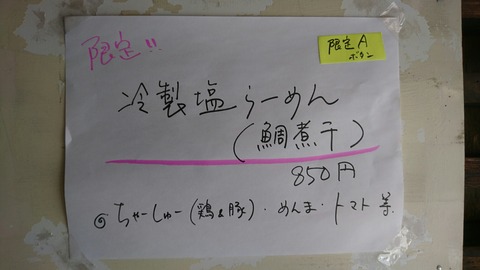 限定!!
限定A
ボタン
冷製塩らーめん
(鯛煮干)
850円
◎ちゃーしゅー(鶏&豚)・めんま・トマト等